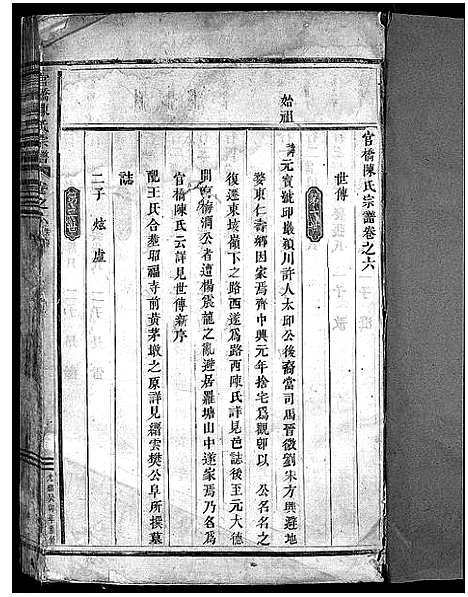 官橋陳氏宗譜卷之六
世傳
始祖
諱元寶號印巖潁川許人太邱公後裔當司馬晉微劉宋方興避地
婺東仁壽鄉因家焉齊中興元年捨宅為觀卽以 公名名之
復遷東垓嶺下之路西遂為路西陳氏詳見邑誌後至元大德
間 梅澗公者遭楊震龍之亂避居羅塘山中遂家焉乃名為
官橋陳氏云詳見世傳新序
配王氏合葬昭福寺前黃茅墩之原詳見縉雲樊公阜所撰墓
誌
二子 炫 虛
官橋陳氏宗譜 卷之六